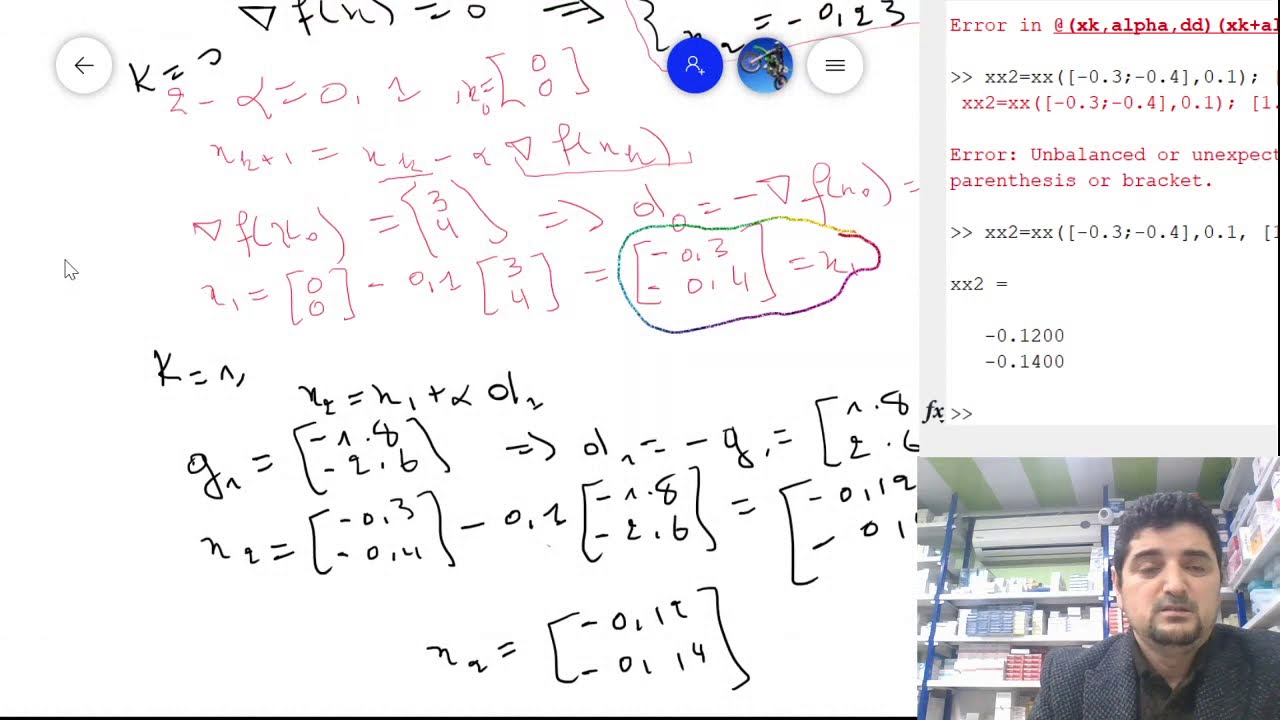 ∇ f(x) = 0 ⟹ { x₂ = -0,23
K = 0
2 - α = 0,1 , x₀ = [0 0]
xₖ₊₁ = xₖ - α ∇ f(xₖ),
∇ f(x₀) = [3 4] ⟹ d₀ = -∇ f(x₀) =
x₁ = [0 0] - 0,1 [3 4] = [-0,3 -0,4] = x₁
K = 1,
x₂ = x₁ + α d₁
g₁ = [-1.8 -2.6] ⟹ d₁ = -g₁ = [1.8 2.6
x₂ = [-0,3 -0,4] - 0,1 [-1.8 -2.6] = [-0,12 -0,1
x₂ = [-0,12 -0,14]
Error in @(xk,alpha,dd)(xk+al
>> xx2=xx([-0.3;-0.4],0.1);
xx2=xx([-0.3;-0.4],0.1); [1.
Error: Unbalanced or unexpect
parenthesis or bracket.
>> xx2=xx([-0.3;-0.4],0.1, [1
xx2 =
-0.1200
-0.1400
fx >>